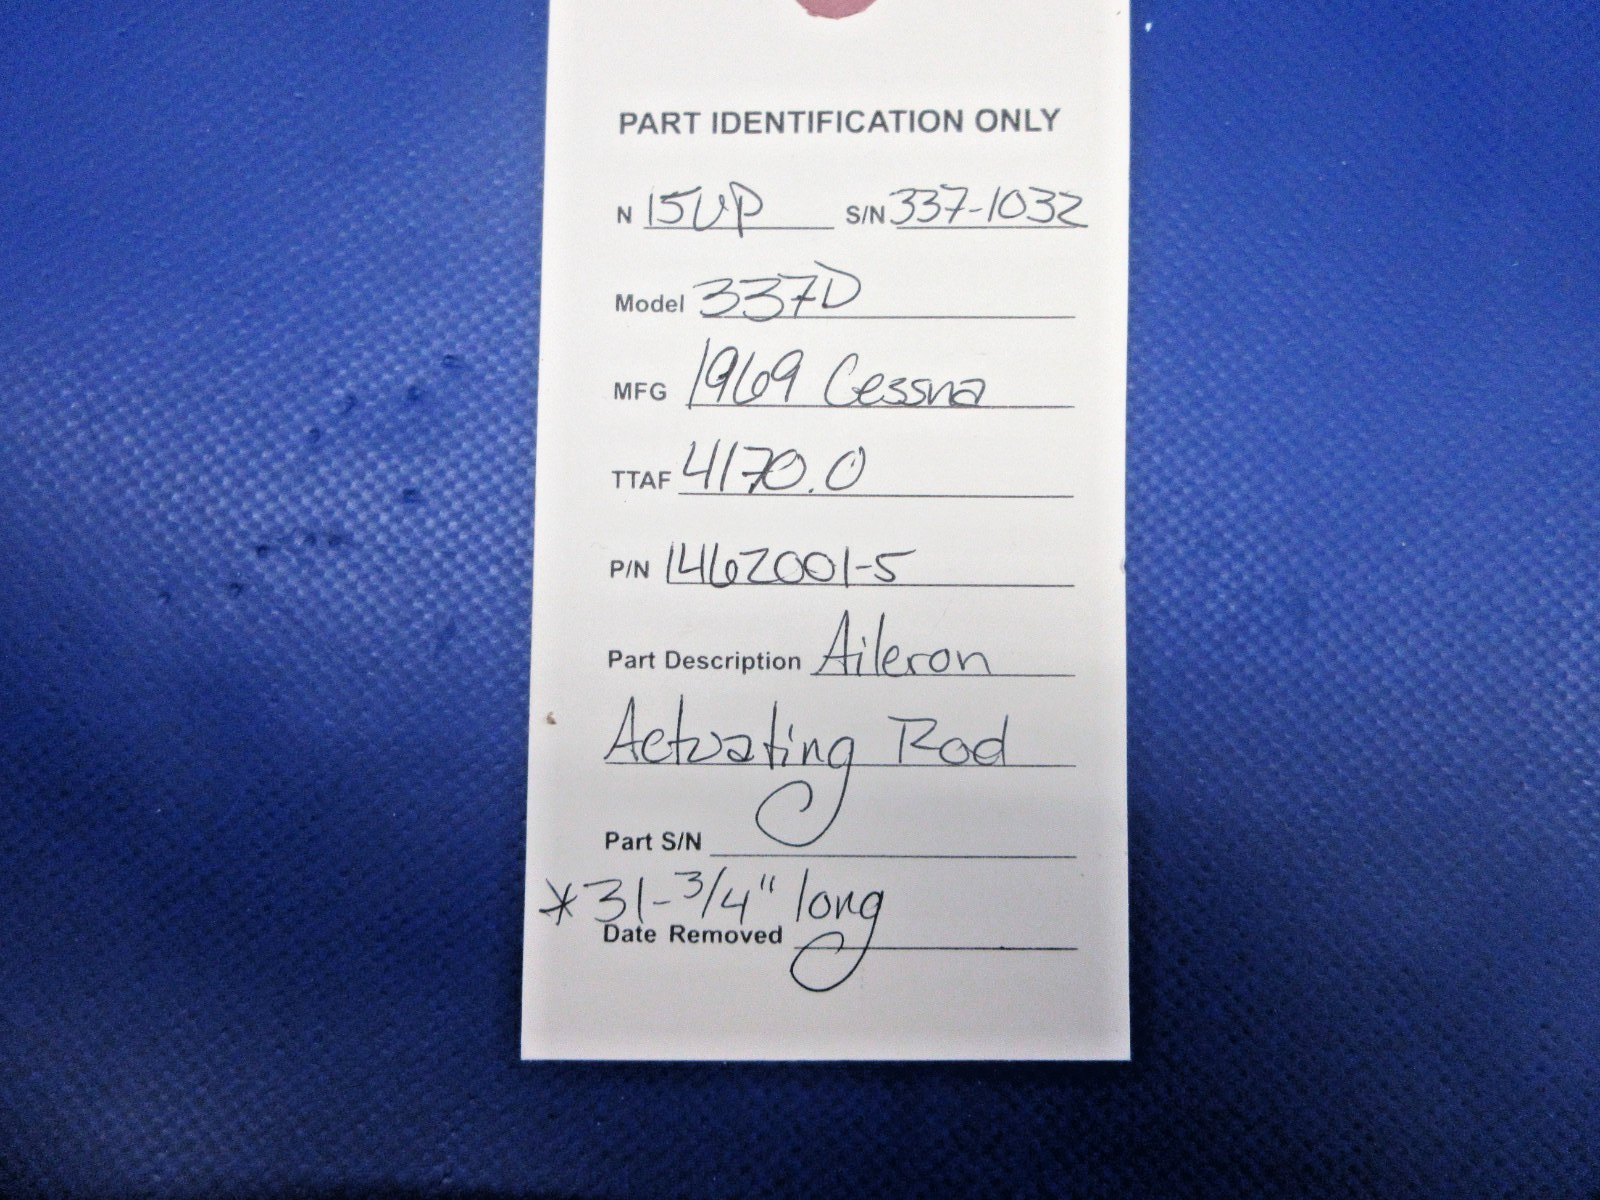 PART IDENTIFICATION ONLY
N 15UP S/N 337-1032
Model 337D
MFG 1969 Cessna
TTAF 4170.0
P/N 1462001-5
Part Description Aileron
Actuating Rod
Part S/N
* 31-3/4" long
Date Removed